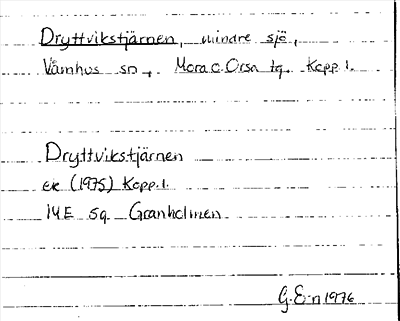 Dryttvikstjärnen, mindre sjö,
Våmhus sn., Mora o. Orsa tg. Kopp. l.
Dryttvikstjärnen
ek (1975) Kopp. l.
14E 5g Granholmen
G. E-n 1976